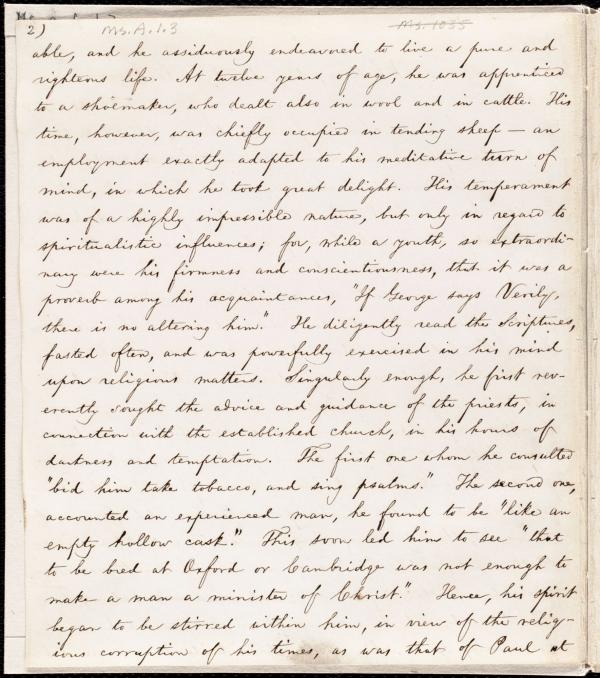 2) Ms.A.1.3 Ms. 1035
able, and he assiduously endeavored to live a pure and
righteous life. At twelve years of age, he was apprenticed
to a shoemaker, who dealt also in wool and in cattle. His
time, however, was chiefly occupied in tending sheep — an
employment exactly adapted to his meditative turn of
mind, in which he took great delight. His temperament
was of a highly impressible nature, but only in regard to
spiritualistic influences; for, while a youth, so extraordi-
nary were his firmness and conscientiousness, that it was a
proverb among his acquaintances, "If George says Verily,
there is no altering him." He diligently read the Scriptures,
fasted often, and was powerfully exercised in his mind
upon religious matters. Singularly enough, he first rev-
erently sought the advice and guidance of the priests, in
connection with the established church, in his hours of
darkness and temptation. The first one whom he consulted
"bid him take tobacco, and sing psalms." The second one,
accounted an experienced man, he found to be "like an
empty hollow cask." This soon led him to see "that
to be bred at Oxford or Cambridge was not enough to
make a man a minister of Christ." Hence, his spirit
began to be stirred within him, in view of the relig-
ious corruption of his times, as was that of Paul at